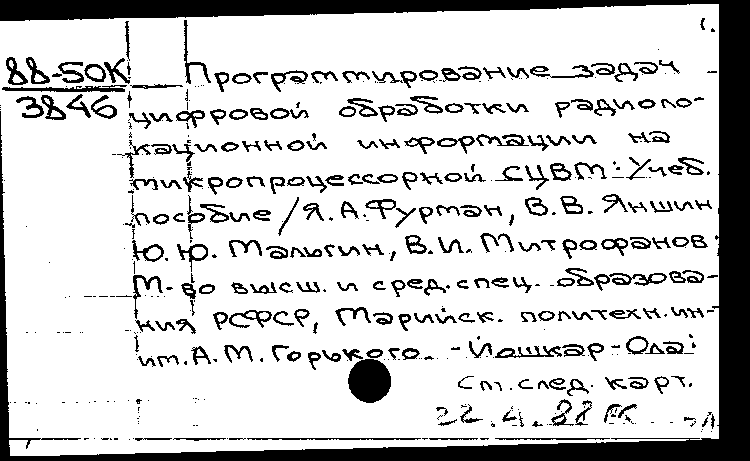 1.
88-50К
3846
Программирование задач
цифровой обработки радиоло-
кационной информации на
микропроцессорной СЦВМ: Учеб.
пособие / Я. А. Фурман, В. В. Яншин,
Ю. Ю. Мальгин, В. И. Митрофанов;
М-во высш. и сред. спец. образова-
ния РСФСР, Марийск. политехн. ин-
им. А. М. Горького. - Йошкар-Ола:
См. след. карт.
22.4.88